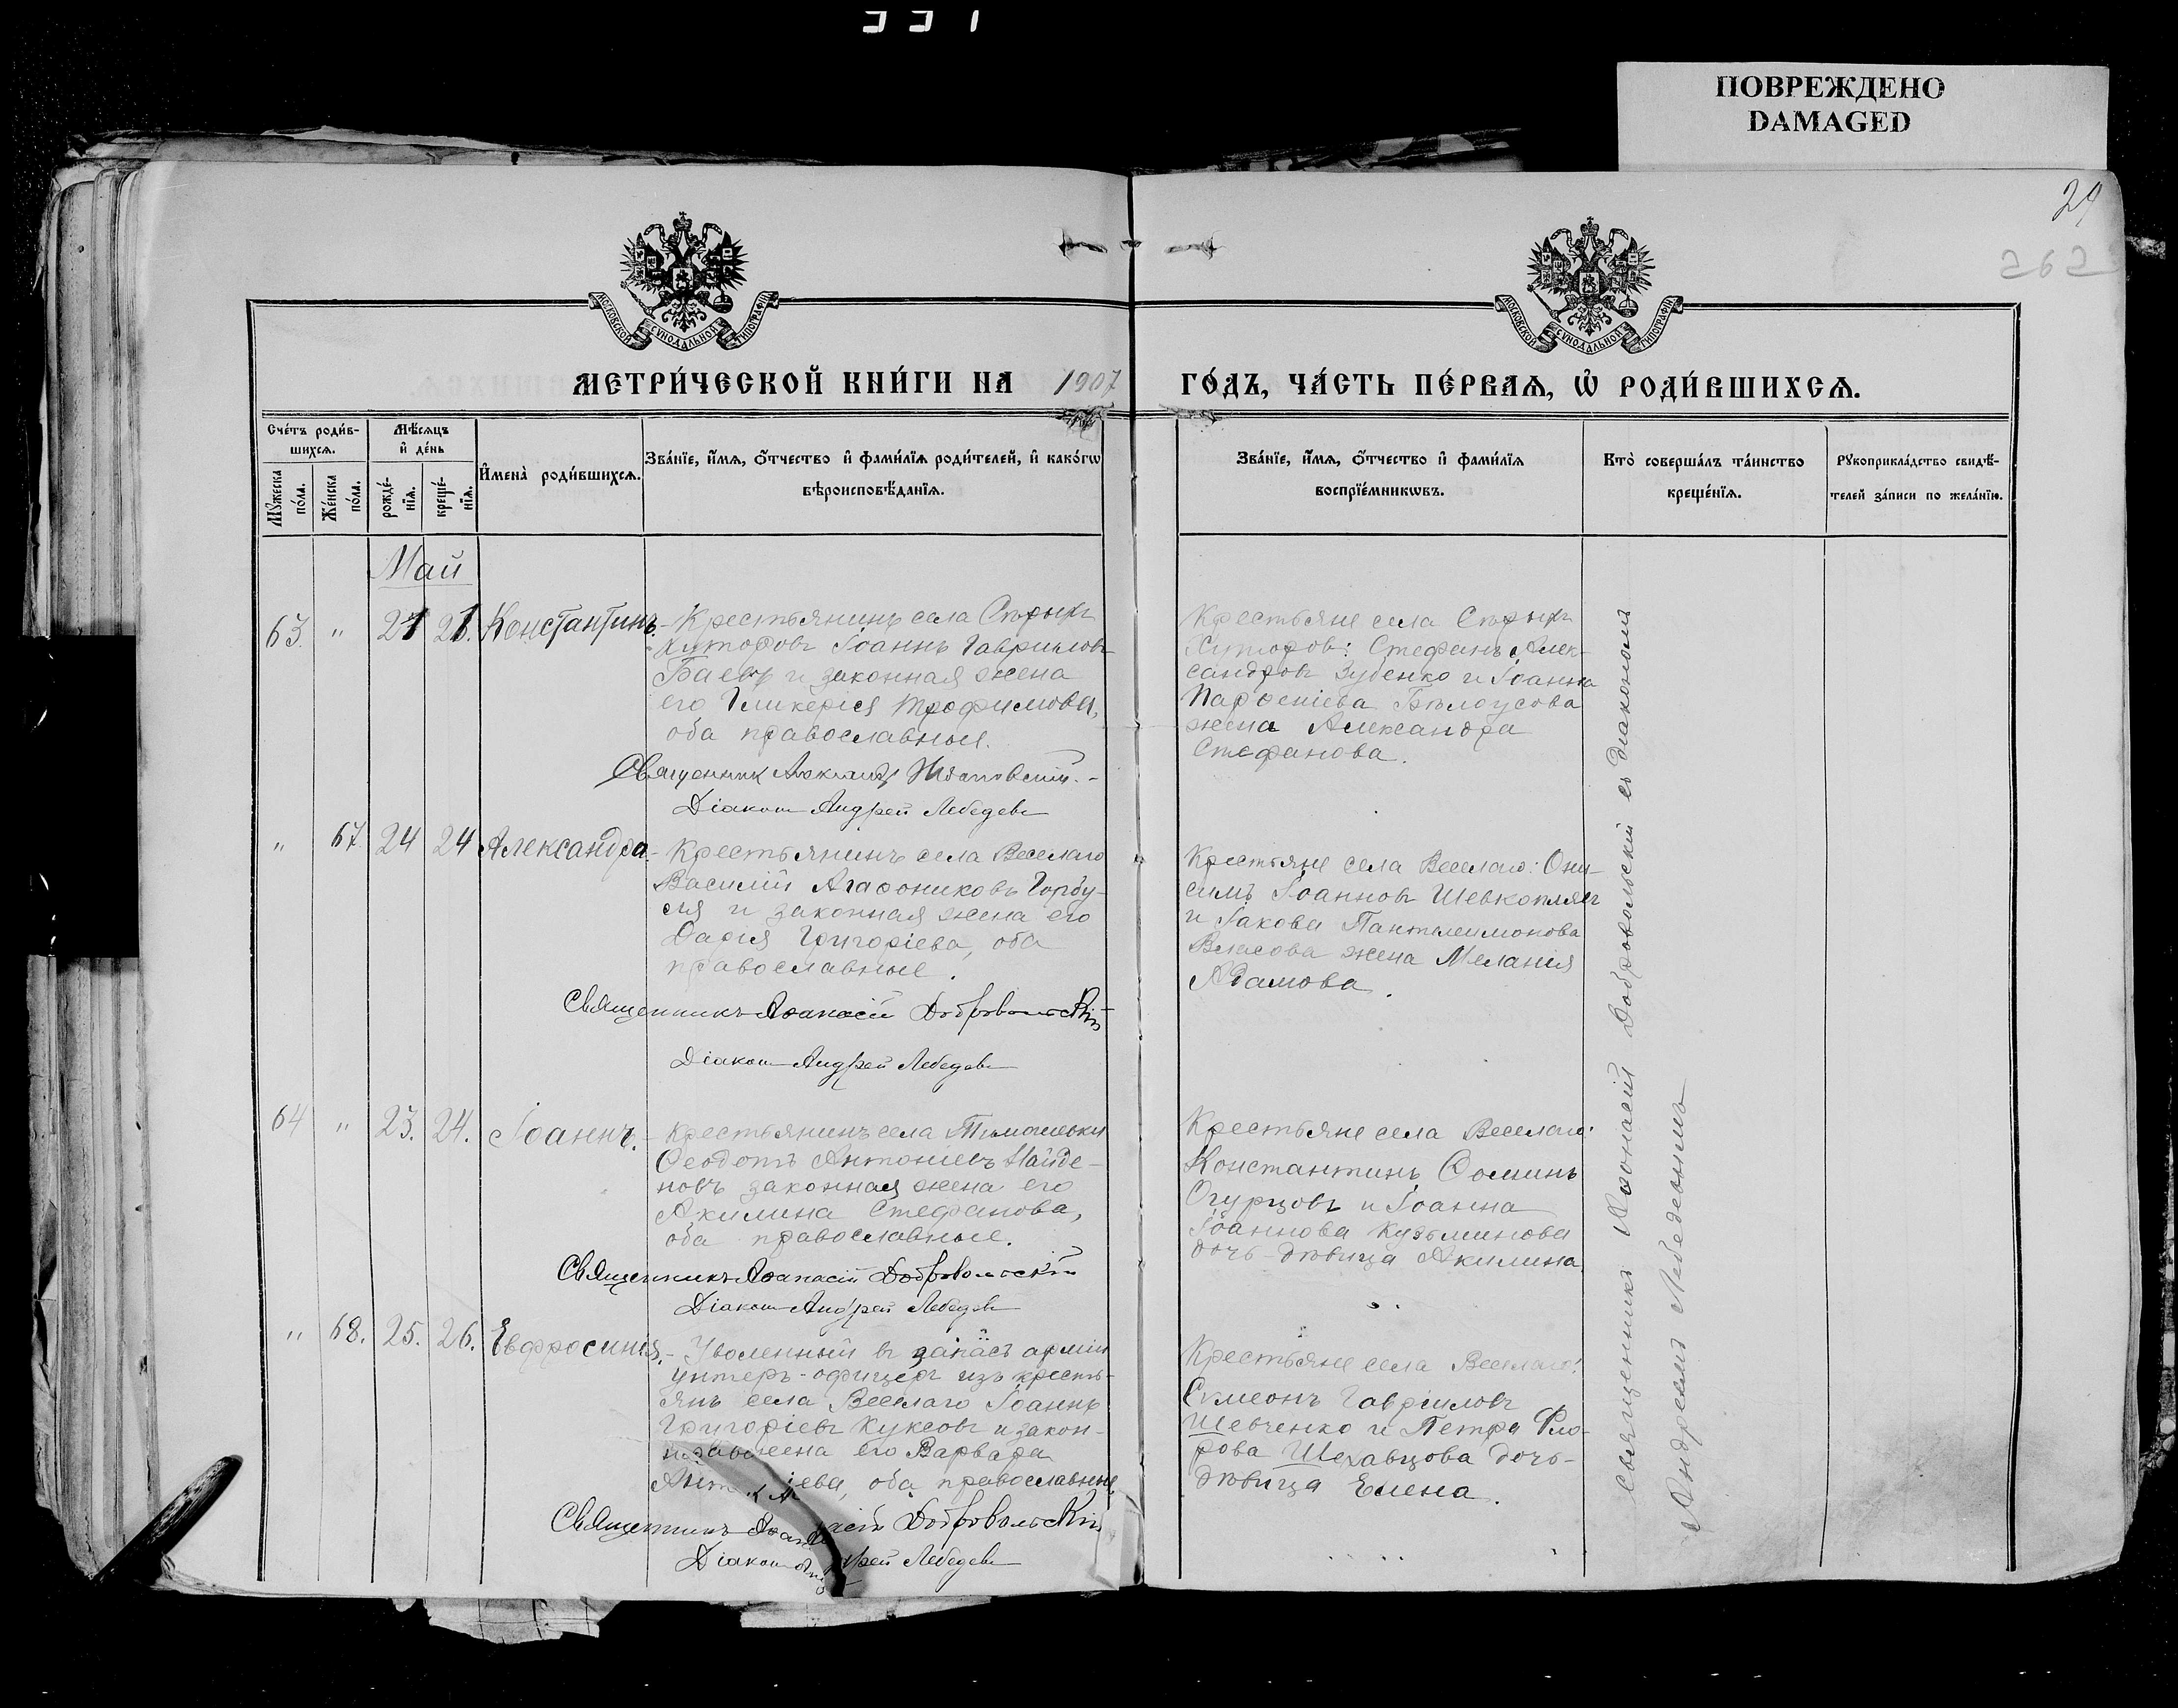 331
ПОВРЕЖДЕНО
DAMAGED
29
262
МОСКОВСКОЙ СУНОДАЛЬНОЙ ТИПОГРАФІИ
МОСКОВСКОЙ СУНОДАЛЬНОЙ ТИПОГРАФІИ
МЕТРИ́ЧЕСКОЙ КНИ́ГИ НА 1907 ГО́ДЪ, ЧА́СТЬ ПЕ́РВАѦ, Ѡ҆ РОДИ́ВШИХСѦ.
Сче́тъ роди́в-
шихсѧ.
Мꙋжеска по́ла.
Же́нска по́ла.
Мѣ́сѧцъ
и҆ де́нь
рожде́-
нїѧ.
креще́-
нїѧ.
И҆мена̀ роди́вшихсѧ.
Зва́нїе, и҆́мѧ, ѻ҆́тчество и҆ фами́лїѧ роди́телей, и҆ како́гѡ
вѣроисповѣ́данїѧ.
Зва́нїе, и҆́мѧ, ѻ҆́тчество и҆ фами́лїѧ
воспрїе́мникѡвъ.
Кто̀ соверша́лъ та́инство
креще́нїѧ.
Рꙋкоприкла́дство свидѣ́-
телей за́писи по жела́нїю.
Май
63. " 21 21. Константинъ.
- Крестьянинъ села Сѣрыхъ
Хуторовъ Іоаннъ Гавриловъ
Баевъ и законная жена
его Гликерія Трофимова,
оба православные.
Священникъ
Діаконъ Андрей Лебедевъ
Крестьяне села Сѣрыхъ
Хуторовъ: Стефанъ Алек-
сандровъ Зубенко и Іоанна
Парѳеніева Бѣлоусова
жена Александра
Стефанова.
" 67 24 24 Александра.
- Крестьянинъ села Веселаго
Василій Агафониковъ Горбу-
ля и законная жена его
Дарія Григоріева, оба
православные.
Священникъ Аѳанасій Добровольскій
Діаконъ Андрей Лебедевъ
Крестьяне села Веселаго: Они-
симъ Іоанновъ Шевкоплясъ
и Іакова Пантелеимонова
Власова жена Меланія
Адамова.
64 " 23. 24. Іоаннъ.
- Крестьянинъ села Тимошевки
Ѳеодотъ Антоніевъ Найде-
новъ законная жена его
Акилина Стефанова,
оба православные.
Священникъ Аѳанасій Добровольскій
Діаконъ Андрей Лебедевъ
Крестьяне села Веселаго:
Константинъ Ѳоминъ
Огурцовъ и Іоанна
Іоаннова Кузьминова
дочь-дѣвица Акилина.
" 68. 25. 26. Евфросинія.
- Уволенный въ запасъ арміи
унтеръ-офицеръ изъ кресть-
янъ села Веселаго Іоаннъ
Григоріевъ Куксовъ и закон-
жена его Варвара
оба православные.
Священникъ Аѳанасій Добровольскій
Діаконъ Андрей Лебедевъ
Крестьяне села Веселаго:
Симеонъ Гавріиловъ
Шевченко и Петра Фло-
рова Шелавцова дочь-
дѣвица Елена.
Священникъ Аѳонасій Добровольскій съ діакономъ
Андреемъ Лебедевымъ